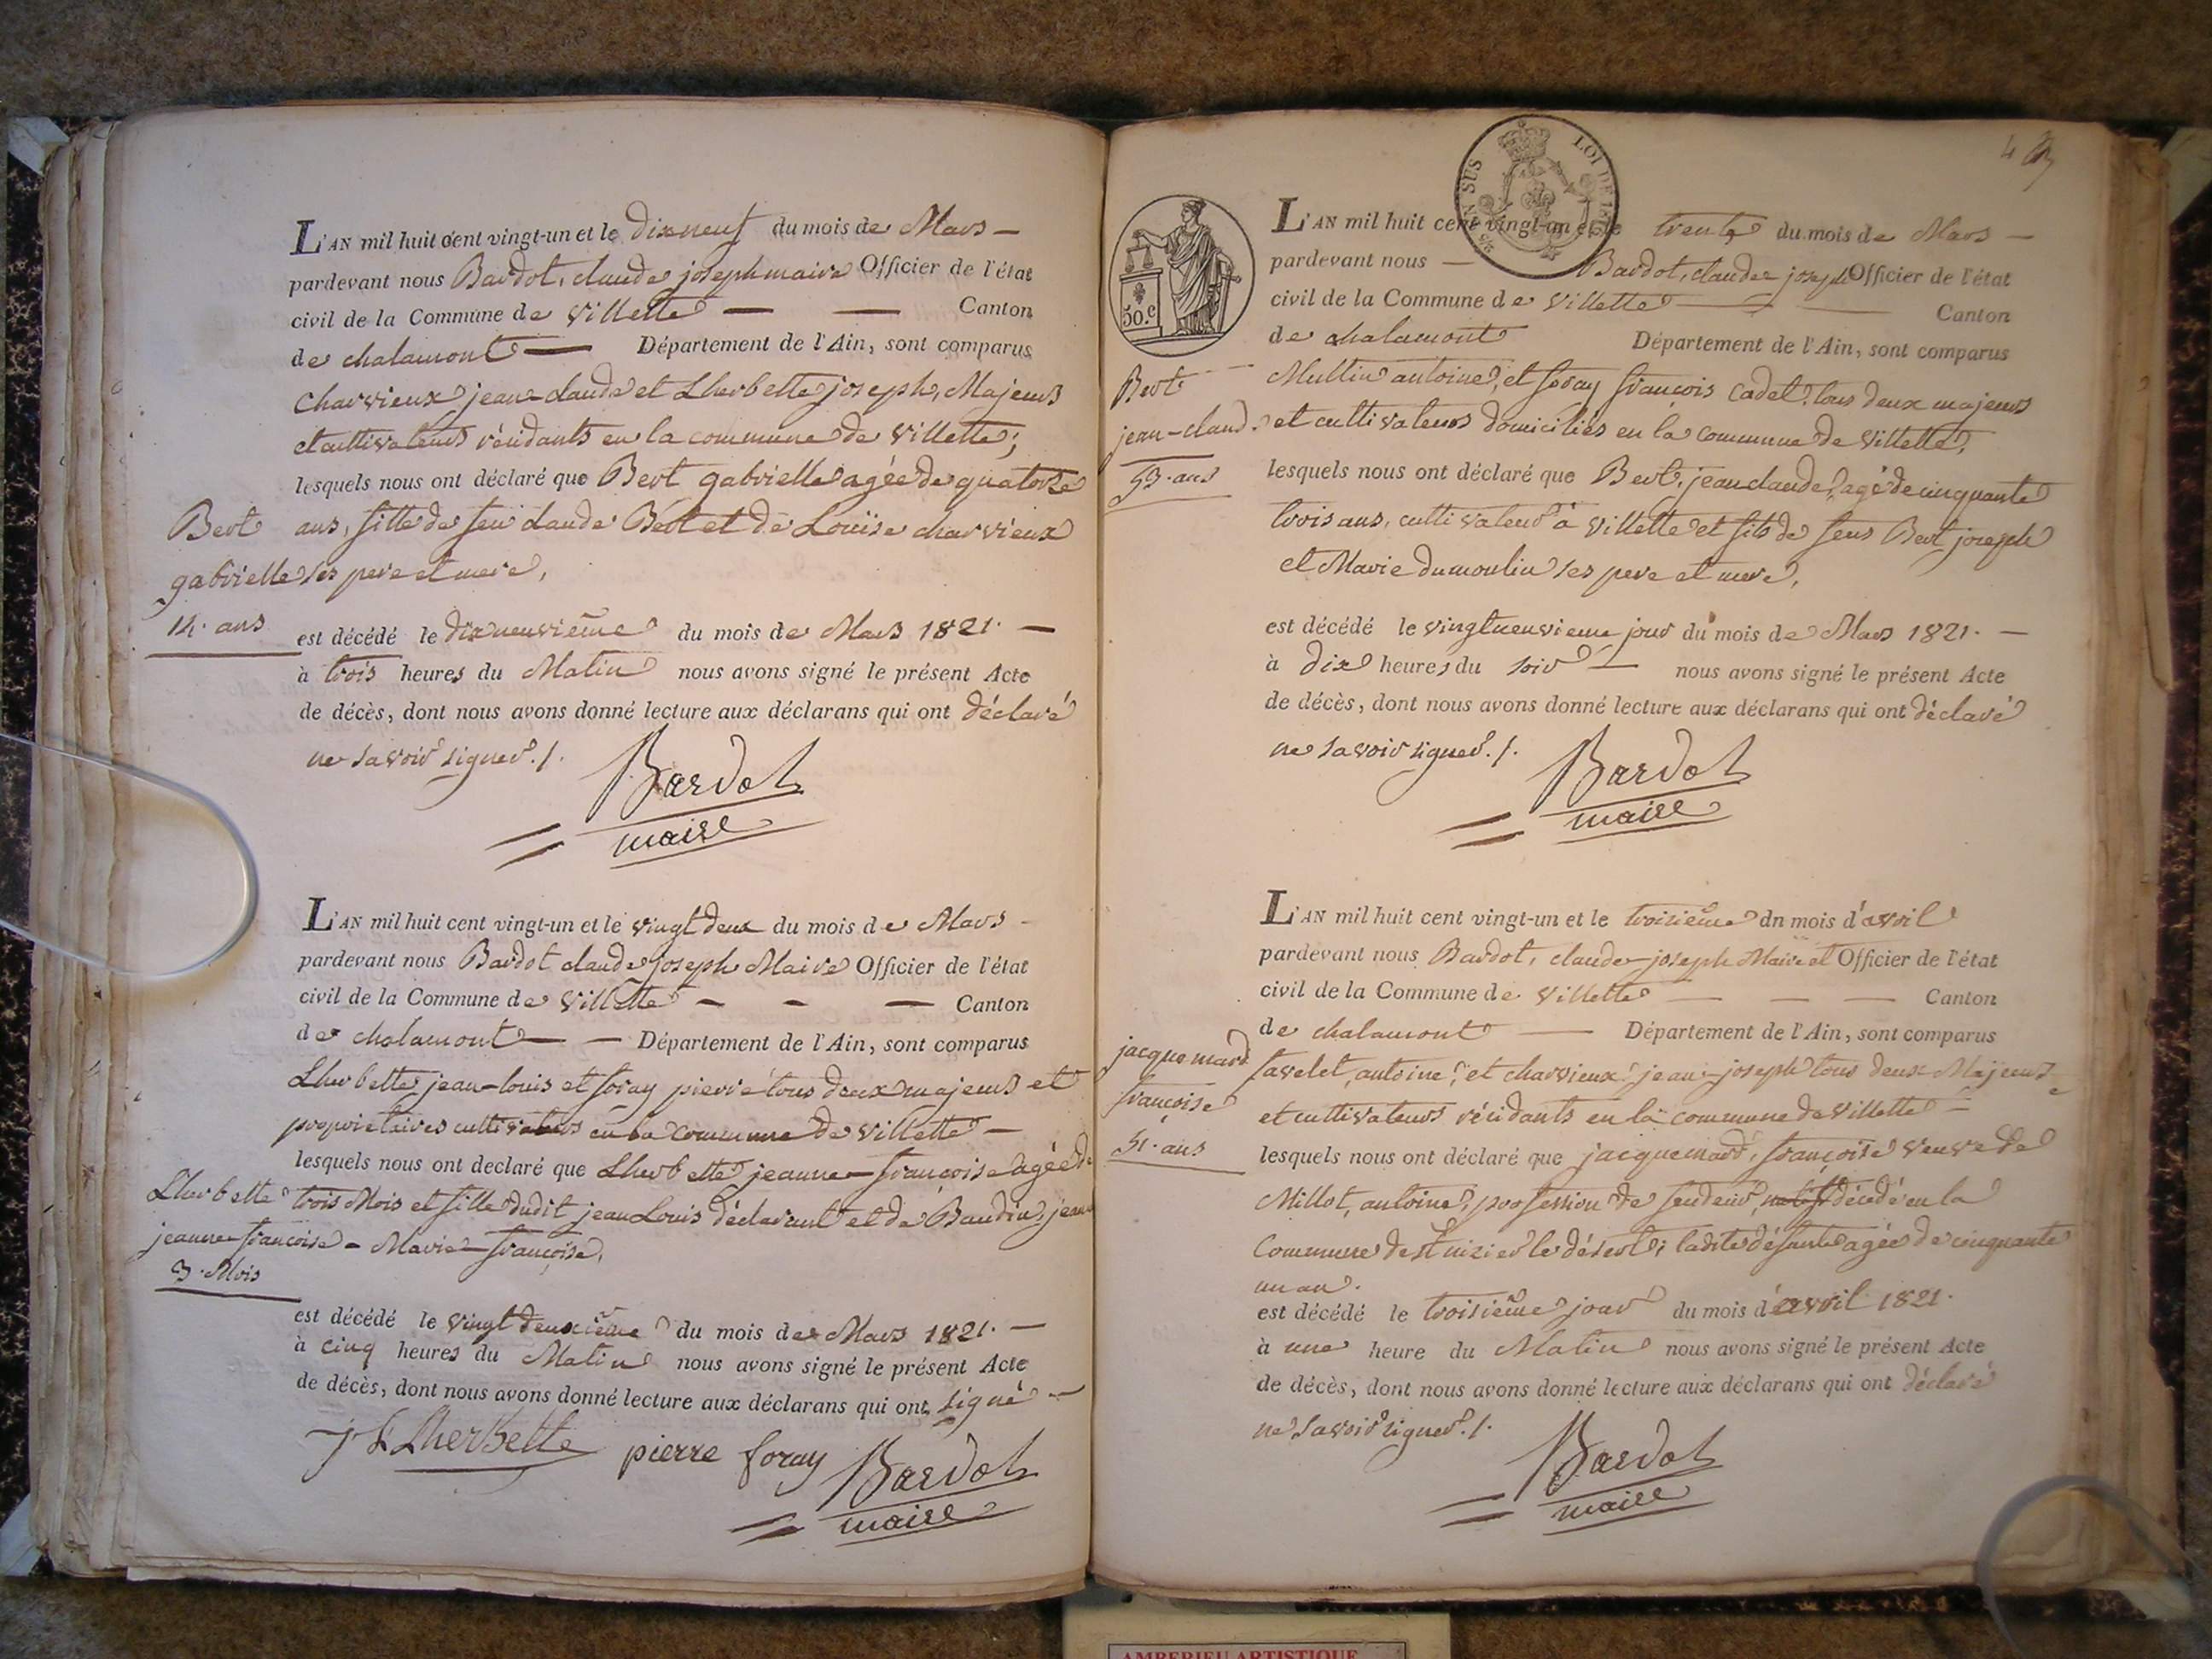 L'AN mil huit cent vingt-un et le dixneuf du mois de Mars —
pardevant nous Bardot, claude joseph maire Officier de l'état
civil de la Commune de Villette — — Canton
de chalamont — Département de l'Ain, sont comparus
Charvieux jean-claude et Lherbette joseph, Majeurs
et cultivateurs résidants en la commune de Villette;
lesquels nous ont déclaré que Bert gabrielle agée de quatorze
ans, fille de feu claude Bert et de Louise charvieux
ses pere et mere,
Bert
gabrielle
14. ans
est décédé le dixneuvième du mois de Mars 1821. —
à trois heures du Matin nous avons signé le présent Acte
de décès, dont nous avons donné lecture aux déclarans qui ont déclaré
ne savoir signer. /.
Bardot
maire
L'AN mil huit cent vingt-un et le vingt deux du mois de Mars -
pardevant nous Bardot claude joseph Maire Officier de l'état
civil de la Commune de Villette - - — Canton
de chalamont — — Département de l'Ain, sont comparus
Lherbette jean-louis et foray pierre tous deux majeurs et
proprietaires cultivateurs en la commune de Villette —
lesquels nous ont declaré que Lherbette jeanne-francoise agée de
trois Mois et fille dudit jean Louis déclarant et de Baudin, jeanne
- Marie-françoise,
Lherbette
jeanne-francoise
3. Mois
est décédé le vingt deuxième du mois de Mars 1821. —
à cinq heures du Matin nous avons signé le présent Acte
de décès, dont nous avons donné lecture aux déclarans qui ont signé —
j L Lherbette pierre foray Bardot
maire
4
LOI DE
EN SUS
50.c
L'AN mil huit cent vingt-un et le trente du mois de Mars —
pardevant nous — Bardot, claude joseph Officier de l'état
civil de la Commune de Villette — — Canton
de chalamont Département de l'Ain, sont comparus
Multin antoine, et foray françois Cadet, tous deux majeurs
et cultivateurs domiciliés en la commune de Villette,
lesquels nous ont déclaré que Bert, jean claude, agé de cinquante
trois ans, cultivateur à Villette et fils de feus Bert joseph
et Marie dumoulin ses pere et mere,
Bert
jean-claud.
53. ans
est décédé le vingtneuvieme jour du mois de Mars 1821. —
à dix heures du soir — nous avons signé le présent Acte
de décès, dont nous avons donné lecture aux déclarans qui ont déclaré
ne savoir signer. /.
Bardot
maire
L'AN mil huit cent vingt-un et le troisième dn mois d'avril
pardevant nous Bardot, claude-joseph Maire et Officier de l'état
civil de la Commune de Villette — — — Canton
de chalamont — Département de l'Ain, sont comparus
favelet, antoine, et charvieux, jean-joseph tous deux Majeurs
et cultivateurs résidants en la commune de Villette —
lesquels nous ont déclaré que jacquemard, françoise veuve de
Millot, antoine, profession de fendeur, décédé en la
Commune de St nizier le désert; ladite défunte agée de cinquante
un an.
jacquemard
françoise
51. ans
est décédé le troisième jour du mois d'avril 1821.
à une heure du Matin nous avons signé le présent Acte
de décès, dont nous avons donné lecture aux déclarans qui ont déclaré
ne savoir signer. /.
Bardot
maire
AMBERIEU ARTISTIQUE